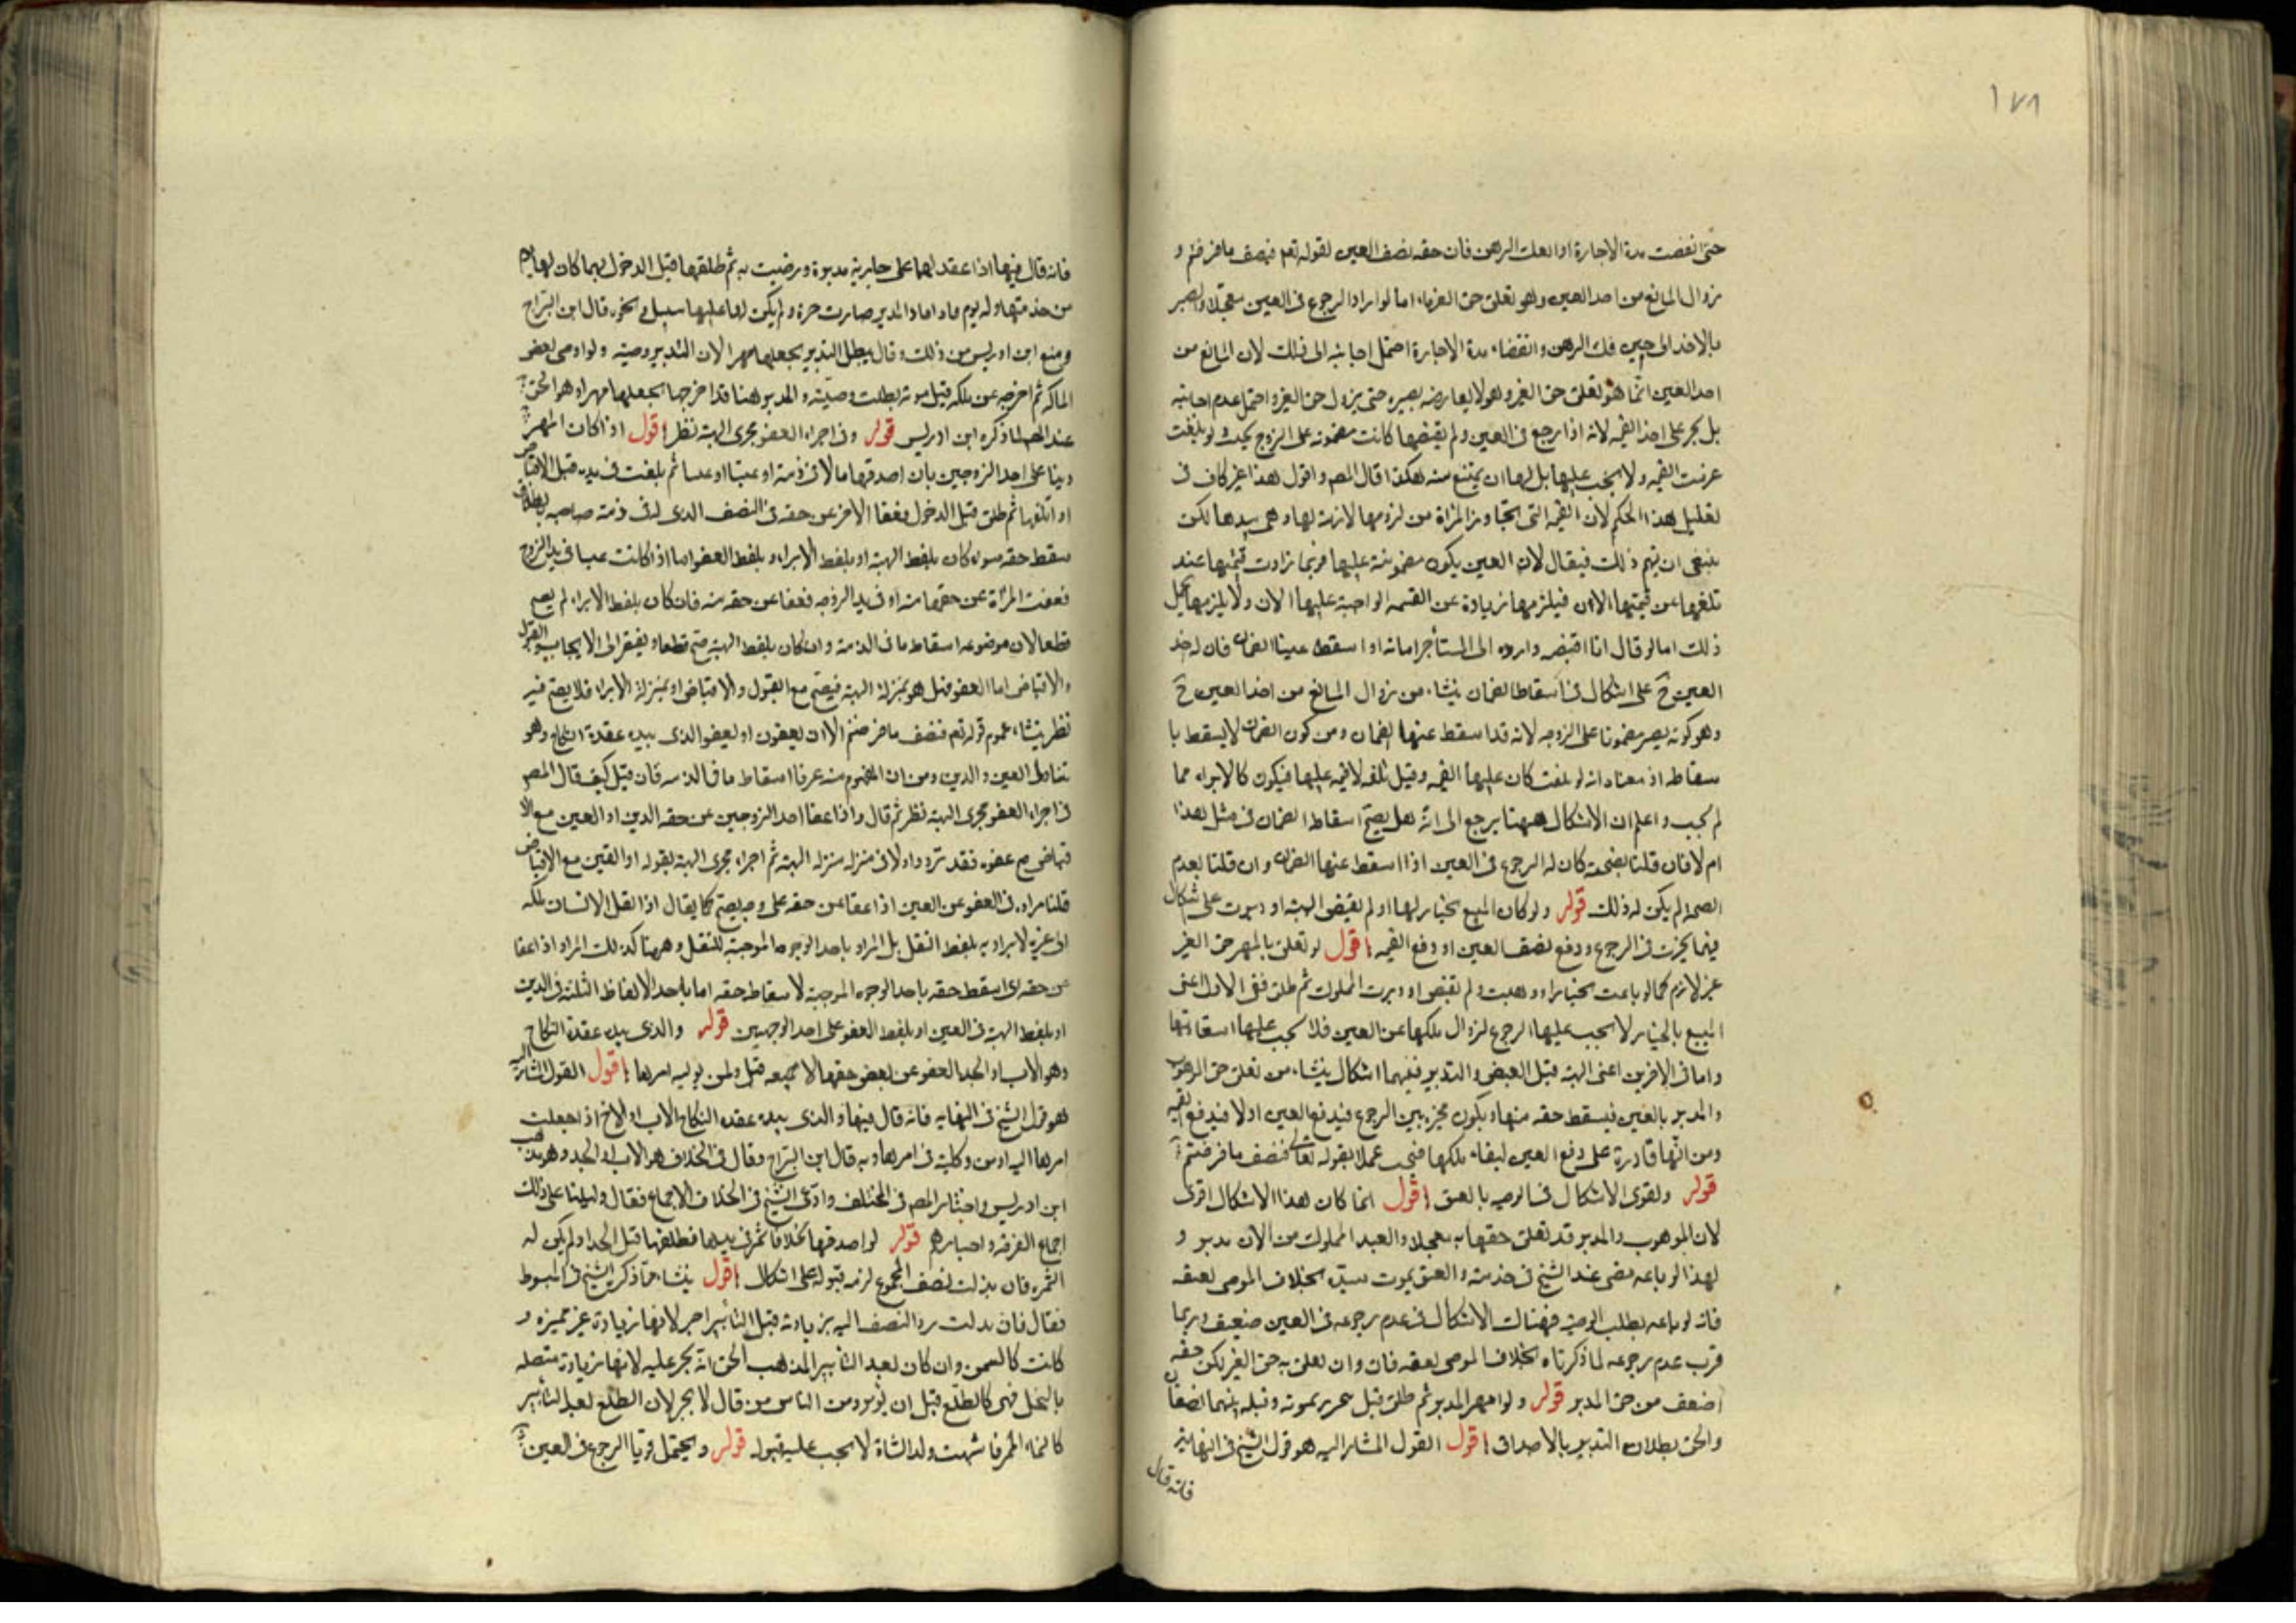 ١٧٨
حتى انقضت مدة الاجارة او انفك الرهن فان حقه نصف العين لقوله تعم فنصف ما فرضتم و
زوال المانع من اخذ العين وهو تعلق حق الغرماء اما لو اراد الرجوع فى العين معجلا ولم يصبر
بالاخذ الى حين فك الرهن وانقضاء مدة الاجارة احتمل اجابته الى ذلك لان المانع من
اخذ العين انما هو تعلق حق الغير وهو لا يعارضه بصبره حتى يزول حق الغير واحتمل عدم اجابته
بل يجبر على اخذ القيمه لانه اذا رجع فى العين ولم يقبضها كانت مضمونه على الزوج بحيث لو تلفت
غرمت القيمه ولا يجب عليها بل لها ان يمتنع منه هكذا قال المص واقول هذا غير كاف فى
تعليل هذا الحكم لان القيمه التى المراة من لزومها لازمة لها وهى بيدها لكن
ينبغى ان يتم ذلك فيقال لان العين يكون مضمونة عليها فربما زادت قيمتها عند
تلفها عن قيمتها الان فيلزمها زيادة عن القيمه الواجبة عليها الان ولا يلزمها تحمل
ذلك اما لو قال انا اقبضه وارده الى المستأجر امانه او اسقط عينا الضمان فان له اخذ
العين ح على اشكال فى اسقاط الضمان ينشاء من زوال المانع من اخذ العين ح
وهو كونه يصير مضمونا على الزوجه لانه قد اسقط عنها الضمان ومن كون الضمان لا يسقط با
سقاطه اذ معناه انه لو تلفت كان عليها القيمه وقبل تلفه لا قيمه عليها فيكون كالابراء مما
لم يجب واعلم ان الاشكال ههنا يرجع الى انه هل يصح اسقاط الضمان فى مثل هذا
ام لا فان قلنا بصحته كان له الرجوع فى العين اذا اسقط عنها الضمان وان قلنا بعدم
الصحه لم يكن له ذلك قوله ولو كان المبيع بخيار لها او لم يقبض الهبة او دبرت على اشكال
فيهما تخيرت فى الرجوع ودفع نصف العين او دفع القيمه اقول لو تعلق بالمهر حق الغير
غير لازم كما لو باعت بخيار او وهبت ولم تقبض او دبرت المملوك ثم طلق ففى الاول اعنى
المبيع بالخيار لا يجب عليها الرجوع لزوال ملكها عن العين فلا يجب عليها استعادتها
واما فى الاخرين اعنى الهبة قبل القبض والتدبير ففيهما اشكال ينشاء من تعلق حق الموهوب
والمدبر بالعين فيسقط حقه منها ويكون مخيره بين الرجوع فيدفع العين اولا فيدفع القيمه
ومن انها قادرة على دفع العين لبقاء ملكها فيجب عملا بقوله تعالى فنصف ما فرضتم
قوله ويقوى الاشكال فى الوصيه بالعتق اقول انما كان هذا الاشكال اقوى
لان الموهوب والمدبر قد تعلق حقها به معجلا والعبد المملوك من الان مدبر و
لهذا لو باعه مضى عند الشيخ فى خدمته والعتق بموت سيده بخلاف الموصى بعتقه
فانه لو باعه بطلت الوصيه فهناك الاشكال فى عدم رجوعه فى العين ضعيف وربما
قرب عدم رجوعه لما ذكرناه بخلاف الموصى بعتقه فان وان تعلق به حق الغير لكن حقه
اضعف من حق المدبر قوله ولو امهر المدبر ثم طلق قبل تحرر بموته وقيله بينهما نصفان
والحق بطلان التدبير بالاصداق اقول القول المشار اليه هو قول الشيخ فى النهاية
فانه قال
فانه قال فيها اذا عقد لها على جارية مدبرة ورضيت به ثم طلقها قبل الدخول بهما كان لها يوم
من خدمتها وله يوم فاذا مات المدبر صارت حرة ولم يكن لها عليها سبيل ونحوه قال ابن البراج
ومنع ابن ادريس من ذلك وقال يبطل التدبير بجعلها مهرا لان التدبير وصيته ولو اوصى ببعض
املاكه ثم اخرجه عن ملكه قبل موته بطلت وصيته والمدبر هنا قد اخرجها بجعلها مهرا وهو الحق
عند المص لما ذكره ابن ادريس قوله وفى اجراء العفو مجرى الهبة نظر اقول اذا كان المهر
دينا على احد الزوجين بان اصدقها مالا فى ذمته او عينا ثم تلفت فى يده قبل الاقباض
او اتلفها ثم طلق قبل الدخول فعفا الاخر عن حقه فى النصف الذى له فى ذمة صاحبه
سقط حقه سواء كان بلفظ الهبة او بلفظ الابراء وبلفظ العفو اما اذا كانت عينا فى يد الزوج
فعفت المراة عن حقها منه او فى يد الزوجه فعفا عن حقه منه فان كان بلفظ الابراء لم يصح
قطعا لان موضوعه اسقاط ما فى الذمة وان كان بلفظ الهبة صح قطعا ويفتقر الى الايجاب والقبول
والاقباض اما العفو فهل هو بمنزلة الهبة فيصح مع القبول والاقباض او بمنزلة الابراء فلا يصح فيه
نظر ينشاء عموم قوله تعم فنصف ما فرضتم الا ان يعفون او يعفو الذى بيده عقدة النكاح وهو
تناول العين والدين ومن ان المفهوم منه عرفا اسقاط ما فى الذمه فان قيل كيف قال المص
فى اجراء العفو مجرى الهبة نظر ثم قال واذا عفا احد الزوجين عن حقه الدين او العين مع الا
قباض صح عفوه فقد تردد اولا فى منزله منزلة الهبة ثم اجراه مجرى الهبة بقوله او العين مع الاقباض
قلنا مراده فى العفو عن العين اذا عفا عن حقه على وجه يصح كما يقال اذا نقل الانسان ملكه
الى غيره لا يراد به بلفظ النقل بل المراد باحد الوجوه الموجبة للنقل وههنا كذلك المراد اذا عفا
عن حقه اى اسقط حقه باحد الوجوه الموجبة لاسقاط حقه اما باحد الالفاظ الثلثة فى الدين
او بلفظ الهبة فى العين او بلفظ العفو على احد الوجهين قوله والذى بيده عقدة النكاح
وهو الاب والجد العفو عن بعض حقها لا جميعه قيل ولمن يوليه امرها اقول القول المشار اليه
هو قول الشيخ فى النهايه فانه قال فيها والذى بيده عقدة النكاح الاب او الاخ اذا جعلت
امرها اليه او من وكلته فى امرها وبه قال ابن البراج وقال فى الخلاف هو الاب او الجد وهو مذهب
ابن ادريس واختار المص فى المختلف وادعى الشيخ فى الخلاف الاجماع فقال دليلنا على ذلك
اجماع الفرقه واخبارهم قوله لو اصدقها نخلا فاثمر فى يدها فطلقها قبل الجداد لم يكن له
الثمره فان بذلت نصف المجموع لزمه قبوله على اشكال اقول ينشاء مما ذكره الشيخ فى المبسوط
فقال فان بذلت رد النصف اليه بزيادته قبل التأبير اجبر لانها زيادة غير مميزه و
كانت كالسمن وان كان بعد التأبير المذهب الحق انه يجبر عليه لانها زيادة متصله
بالنخل فهى كالطلع قبل ان يؤبر ومن الناس من قال لا يجبر لان الطلع بعد التأبير
كالنماء المفرد شبهت ولد الشاة لا يجب عليه قبوله قوله ويحتمل قويا الرجوع فى العين